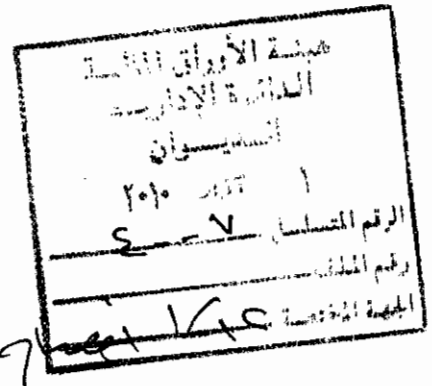 هيئة الأوراق المالية
الدائرة الإدارية
الديوان
١ ٢٠١٠
الرقم المتسلسل ٧ - ٤
رقم الملف
الجهة المختصة